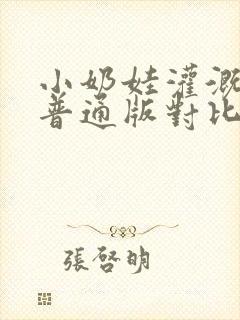 小奶娃灌溉
普通版對比
張啓明